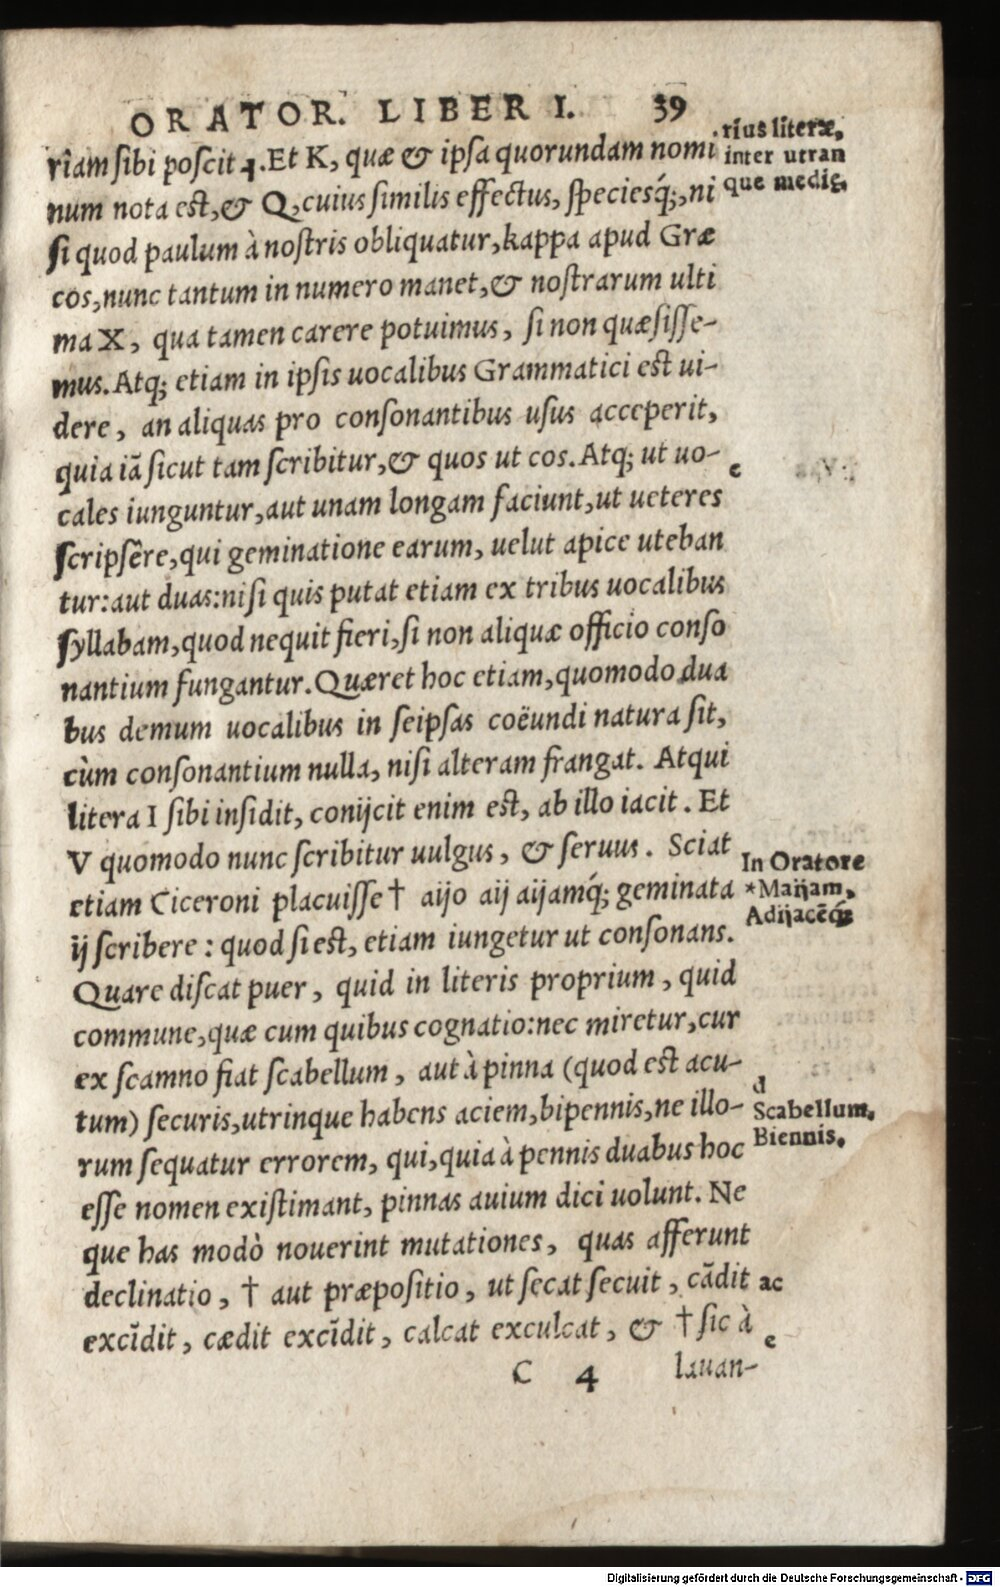 ORATOR. LIBER I. 39
rîam sibi poscit ⅎ. Et K, quæ & ipsa quorundam nomi
num nota est, & Q, cuius similis effectus, speciesq́;, ni
si quod paulum à nostris obliquatur, kappa apud Græ
cos, nunc tantum in numero manet, & nostrarum ulti
ma X, qua tamen carere potuimus, si non quæsisse-
mus. Atq; etiam in ipsis uocalibus Grammatici est ui-
dere, an aliquas pro consonantibus usus acceperit,
quia iã sicut tam scribitur, & quos ut cos. Atq; ut uo- c
cales iunguntur, aut unam longam faciunt, ut ueteres
scripsêre, qui geminatione earum, uelut apice uteban
tur: aut duas: nisi quis putat etiam ex tribus uocalibus
syllabam, quod nequit fieri, si non aliquæ officio conso
nantium fungantur. Quæret hoc etiam, quomodo dua
bus demum uocalibus in seipsas coëundi natura sit,
cùm consonantium nulla, nisi alteram frangat. Atqui
litera I sibi insidit, conijcit enim est, ab illo iacit. Et
V quomodo nunc scribitur uulgus, & seruus. Sciat
etiam Ciceroni placuisse † aijo aij aijamq́; geminata
ij scribere: quod si est, etiam iungetur ut consonans.
Quare discat puer, quid in literis proprium, quid
commune, quæ cum quibus cognatio: nec miretur, cur
ex scamno fiat scabellum, aut à pinna (quod est acu-
tum) securis, utrinque habens aciem, bipennis, ne illo-
rum sequatur errorem, qui, quia à pennis duabus hoc
esse nomen existimant, pinnas auium dici uolunt. Ne
que has modò nouerint mutationes, quas afferunt
declinatio, † aut præpositio, ut secat secuit, cãdit ac
excĩdit, cædit excĩdit, calcat exculcat, & † sic à e
C 4 lauan-
rius literæ,
inter utran
que medię.
In Oratore
*Maijam,
Adijacẽq́;
d
Scabellum.
Biennis.
Digitalisierung gefördert durch die Deutsche Forschungsgemeinschaft - DFG